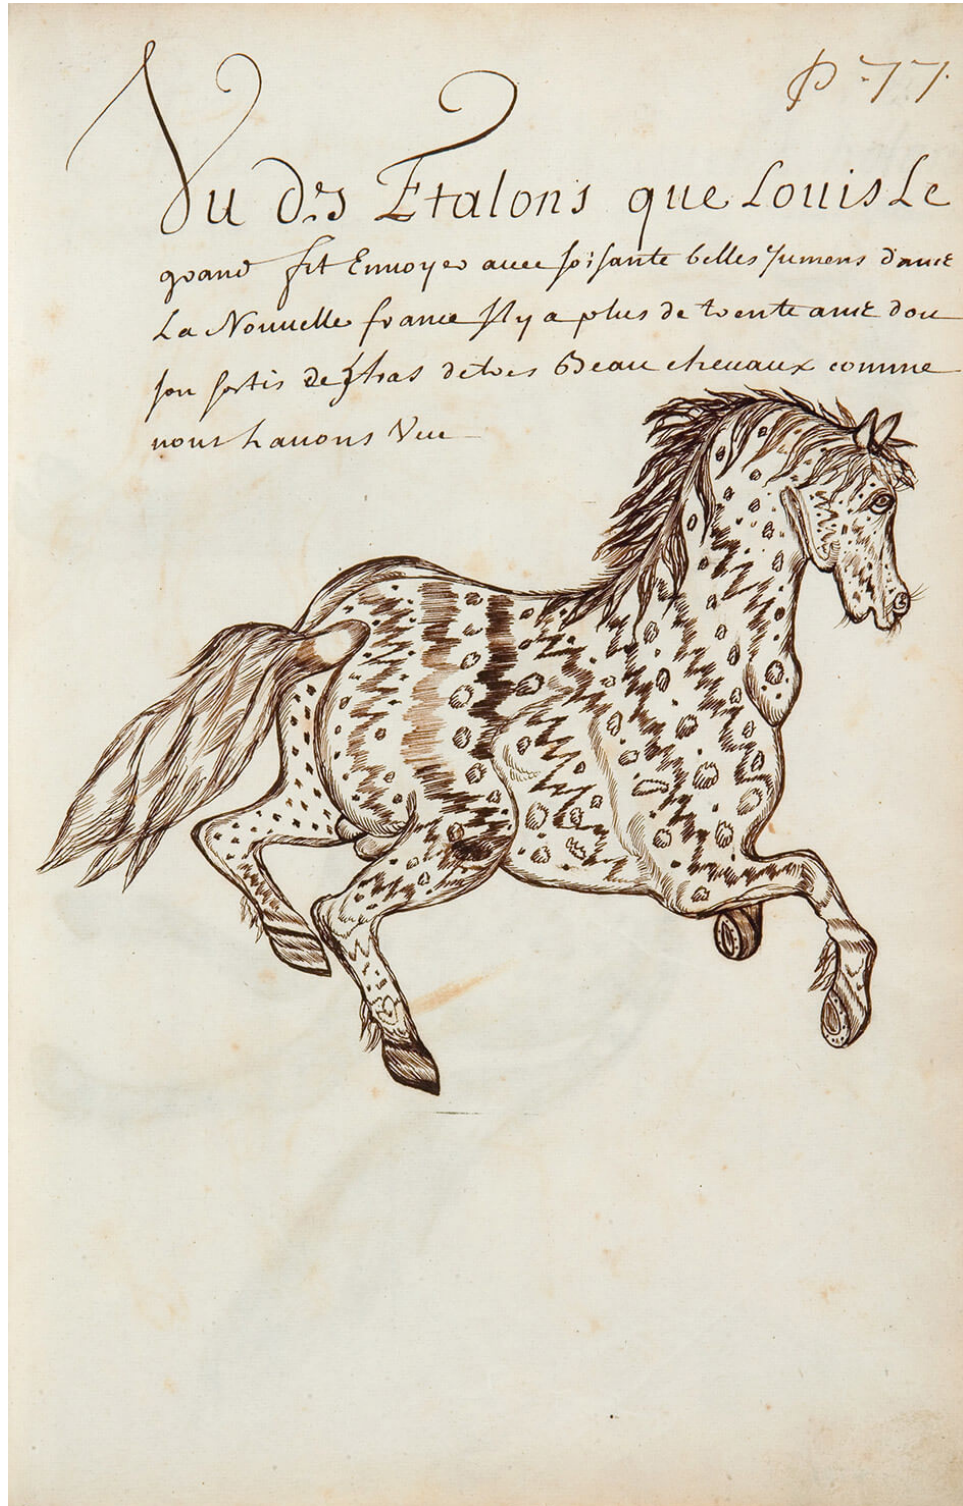 P 77.
Vu des Etalons que Louis Le
grand fit Ennoyer auec soisante belles Jumens dans
La Nouuelle france Il y a plus de trente ans dou
son sortis de tres Beau cheuaux comme
nous Lauons Veu